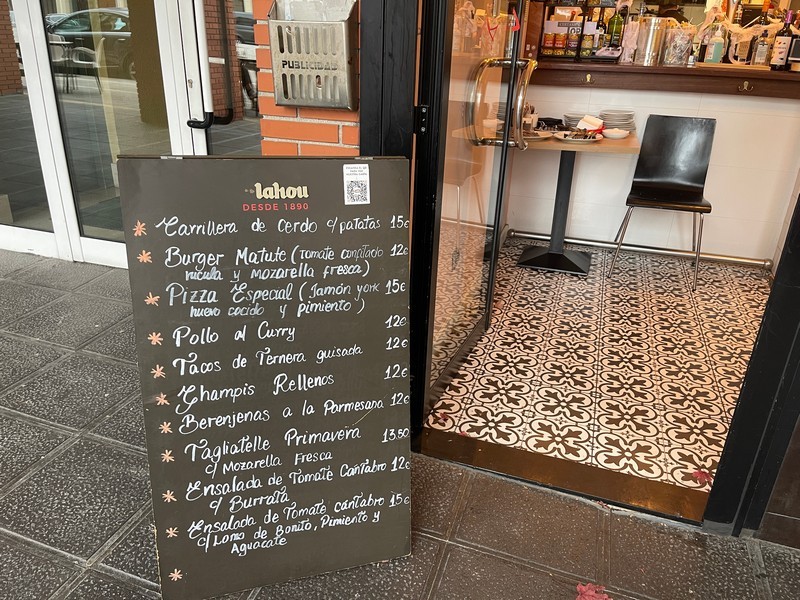 PUBLICIDAD
lahou
DESDE 1890
Carrillera de Cerdo c/patatas 15€
Burger Matute (Tomate confitado 12€
rúcula y Mozarella fresca)
Pizza Especial (Jamón york 15€
huevo cocido y pimiento)
Pollo al Curry 12€
Tacos de Ternera guisada 12€
Champis Rellenos 12€
Berenjenas a la Parmesana 12€
Tagliatelle Primavera 13.50
c/ Mozarella Fresca
Ensalada de Tomate Cantabro 12€
c/ Burrata
Ensalada de Tomate cántabro 15€
c/Lomo de Bonito, Pimiento y
Aguacate